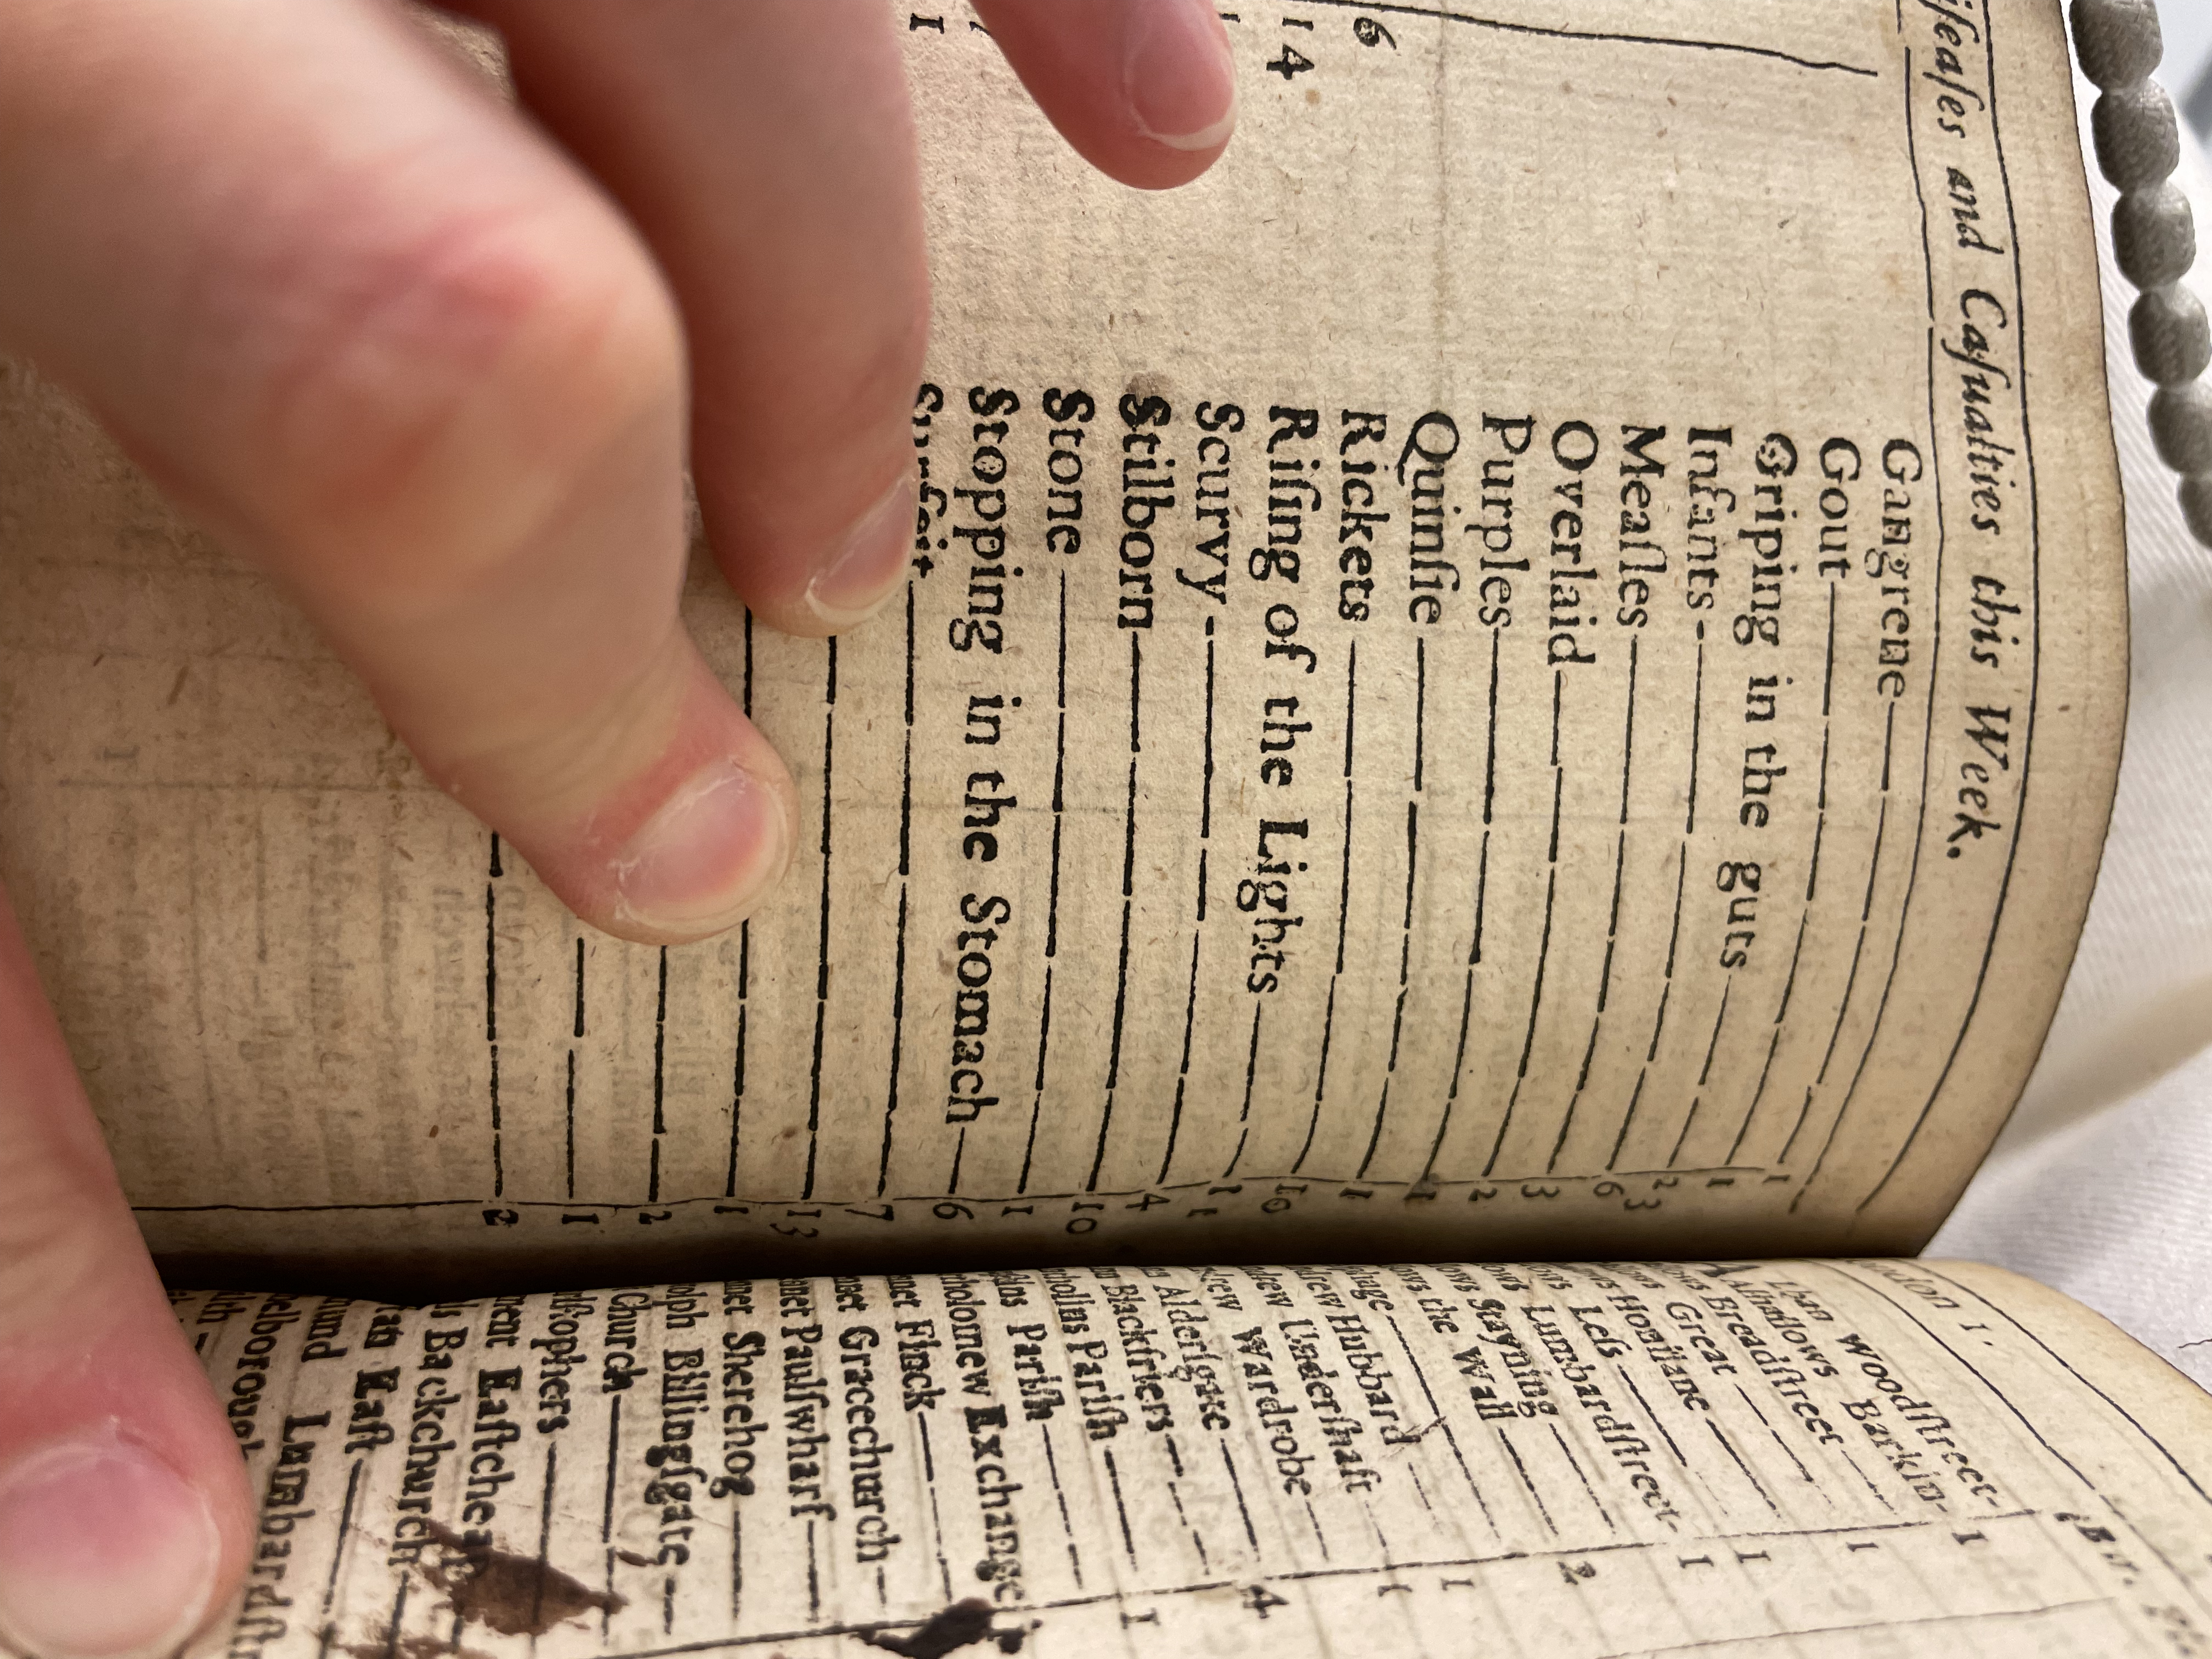 iſeaſes and Caſualties this Week.
Gangrene 1
Gout 1
Griping in the guts 23
Infants 6
Meaſles 3
Overlaid 2
Purples 1
Quinſie 1
6 Rickets 10
14 Riſing of the Lights 11
Scurvy 4
Stilborn 10
Stone 1
Stopping in the Stomach 6
1 Surfeit 7
13
1
2
1
2
lban Woodſtreet- 1
Alhallows Barkin-
Breadſtreet 1
Great
Honilane 1
Leſs 1
Lumbardſtreet-
Stayning 2
ows the Wall
1
drew Hubbard 1
drew Underſhaft
drew Wardrobe
Alderſgate 4
Blackfriers
nholins Pariſh 1
Pariſh
holomew Exchange
net Finck
net Gracechurch
net Paulſwharf
net Sherehog
olph Billingſgate
Church
iſtophers
ment Eaſtcheap
is Backchurch
Eaſt
und Lumbardſtr